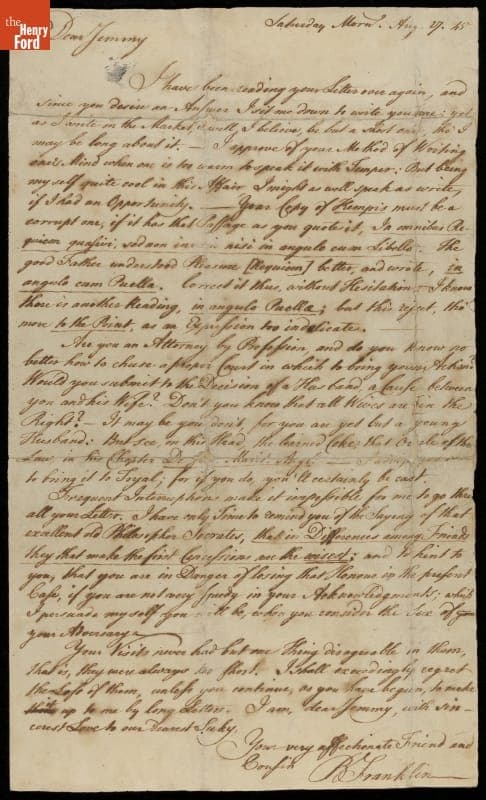 the
Henry
Ford
Saturday Morn.g Aug. 17. 45
Dear Jemmy
I have been reading your Letter over again, and
since you desire an Answer I sit me down to write you one; yet
as I write in the Market, will, I believe, be but a short one, tho' I
may be long about it. — I approve of your Method of Writing
one's Mind when one is too warm to speak it with Temper: But being
my self quite cool in this Affair I might as well speak as write,
if I had an Opportunity. — Your Copy of Kempis must be a
corrupt one, if it has that Passage as you quote it, In omnibus Re-
quiem quæsivi, sed non inveni nisi in angulo cum Libello. The
good Father understood Pleasure [Requiem] better, and wrote, in
angulo cum Puella. Correct it thus, without Hesitation. — I know
there is another Reading, in angulo Puellæ; but this reject, tho'
more to the Point, as an Expression too indelicate. —
Are you an Attorney by Profession, and do you know no
better how to chuse a proper Court in which to bring your Action?
Would you submit to the Decision of a Husband, a Cause between
you and his Wife? Don't you know that all Wives are in the
Right? — It may be you don't, for you are yet but a young
Husband: But see, on this Head, the learned Coke, that Oracle of the
Law, in his Chapter De Marit. Angl.
to bring it to Tryal; for if you do, you'll certainly be cast.
Frequent Interruptions make it impossible for me to go thro'
all your Letter. I have only Time to remind you of the Saying of that
excellent old Philosopher Socrates, that in Differences among Friends,
they that make the first Concessions are the wisest; and to hint to
you, that you are in Danger of losing that Honour in the present
Case, if you are not very speedy in your Acknowledgments; which
I persuade my self you will be, when you consider the Sex of
your Adversary.
Your Visits never had but one Thing disagreable in them,
that is, they were always too short. I shall exceedingly regret
the Loss of them, unless you continue, as you have begun, to make
up to me by long Letters. I am, dear Jemmy, with sin-
cerest Love to our Dearest Suky,
Your very affectionate Friend and
Cousin B Franklin